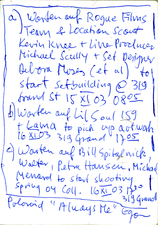 a) Warten auf Rogue Films
Team & Location Scout
Kevin Knee + Line Producer
Michael Scully + Set Designer
Debora Moses (et al) to
start setbuilding @ 319
Grand St 15 XI 03 08 05
b) Warten auf Lil Soul 159
+ Lama to pick up artwork
16 XI 03 319 Grand 17 05
c) Warten auf Bill Spitalnick,
Walter, Petra Hansen, Michael
Menard to start shooting
Spring 04 Coll. 16 XI 03 700
319 Grand
Polaroid "Always Me"